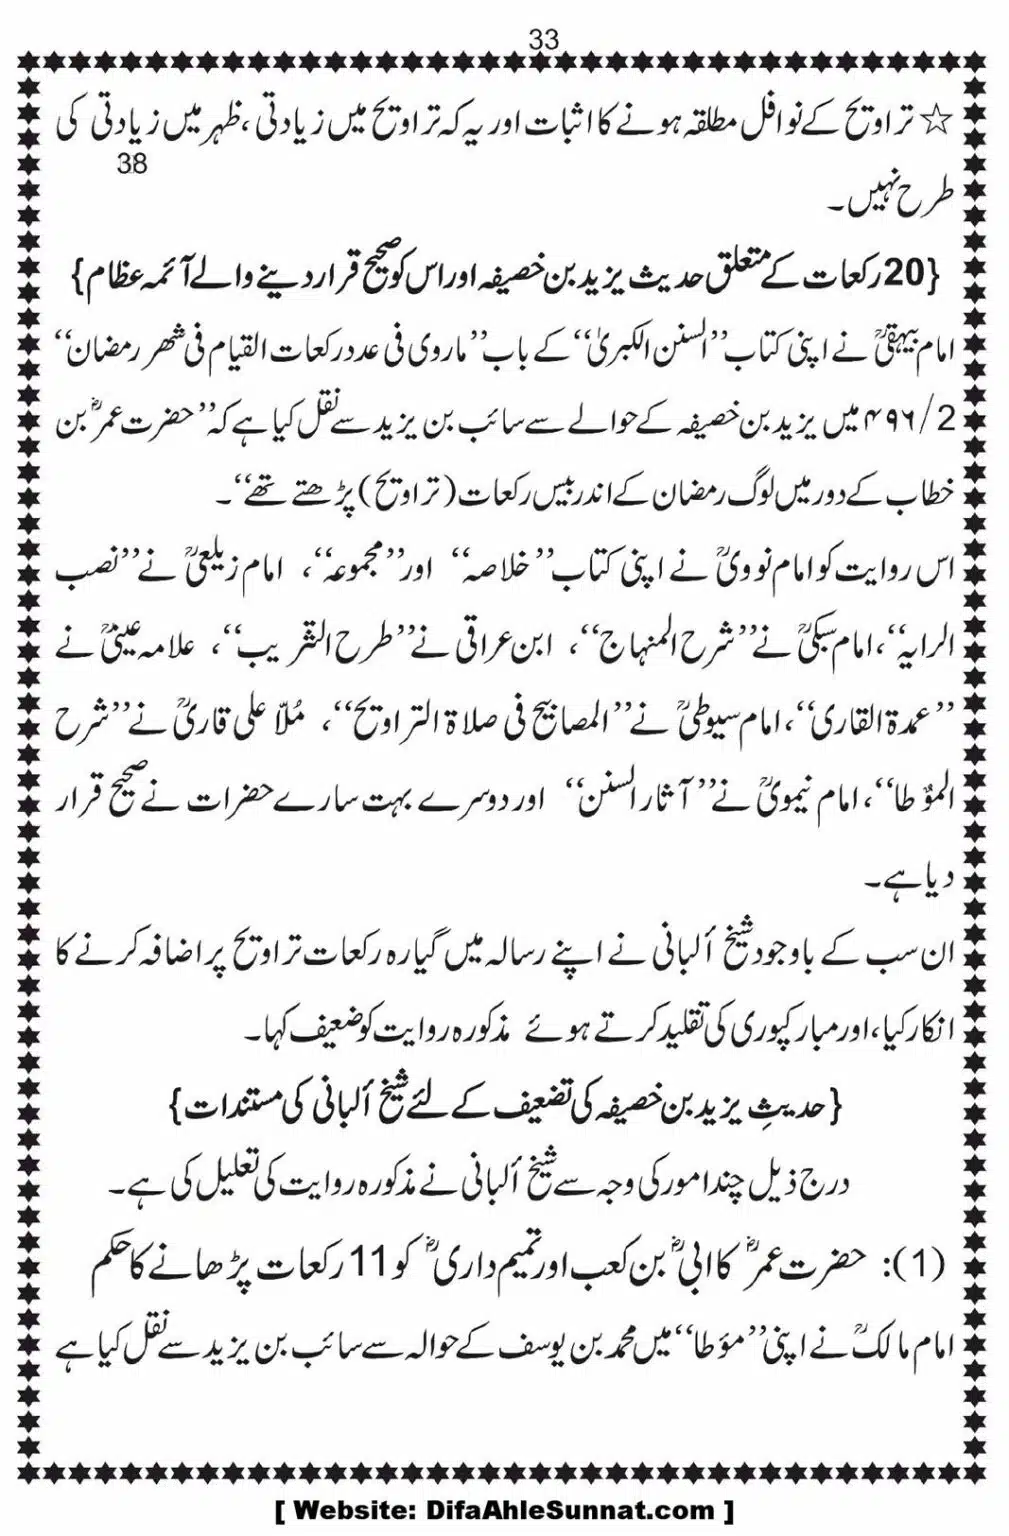 33
☆ تراویح کے نوافل مطلقہ ہونے کا اثبات اور یہ کہ تراویح میں زیادتی، ظہر میں زیادتی کی
38
طرح نہیں۔
{20 رکعات کے متعلق حدیث یزید بن خصیفہ اور اس کو صحیح قرار دینے والے آئمہ عظام}
امام بیہقیؒ نے اپنی کتاب ’’السنن الکبریٰ‘‘ کے باب ’’ماروی فی عدد رکعات القیام فی شھر رمضان‘‘
2/۴۹۶ میں یزید بن خصیفہ کے حوالے سے سائب بن یزید سے نقل کیا ہے کہ ’’حضرت عمرؓ بن
خطاب کے دور میں لوگ رمضان کے اندر بیس رکعات (تراویح) پڑھتے تھے‘‘۔
اس روایت کو امام نوویؒ نے اپنی کتاب ’’خلاصہ‘‘ اور ’’مجموعہ‘‘، امام زیلعیؒ نے ’’نصب
الرایہ‘‘، امام سبکیؒ نے ’’شرح المنہاج‘‘، ابن عراقی نے ’’طرح التثریب‘‘، علامہ عینیؒ نے
’’عمدۃ القاری‘‘، امام سیوطیؒ نے ’’المصابیح فی صلاۃ التراویح‘‘، مُلّا علی قاریؒ نے ’’شرح
المؤطا‘‘، امام نیمویؒ نے ’’آثار السنن‘‘ اور دوسرے بہت سارے حضرات نے صحیح قرار
دیا ہے۔
ان سب کے باوجود شیخ ألبانی نے اپنے رسالہ میں گیارہ رکعات تراویح پر اضافہ کرنے کا
انکار کیا، اور مبارکپوری کی تقلید کرتے ہوئے مذکورہ روایت کو ضعیف کہا۔
{حدیثِ یزید بن خصیفہ کی تضعیف کے لئے شیخ ألبانی کی مستندات}
درج ذیل چند امور کی وجہ سے شیخ ألبانی نے مذکورہ روایت کی تعلیل کی ہے۔
(1): حضرت عمرؓ کا ابیؓ بن کعب اور تمیم داریؓ کو 11 رکعات پڑھانے کا حکم
امام مالکؒ نے اپنی ’’مؤطا‘‘ میں محمد بن یوسف کے حوالہ سے سائب بن یزید سے نقل کیا ہے
[ Website: DifaAhleSunnat.com ]